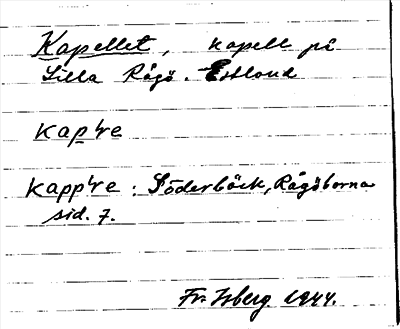 Kapellet, kapell på
Lilla Rågö. Estland
kap're
kapp're : Söderbäck, Rågöborna
sid. 7.
Fr. Isberg 1944.